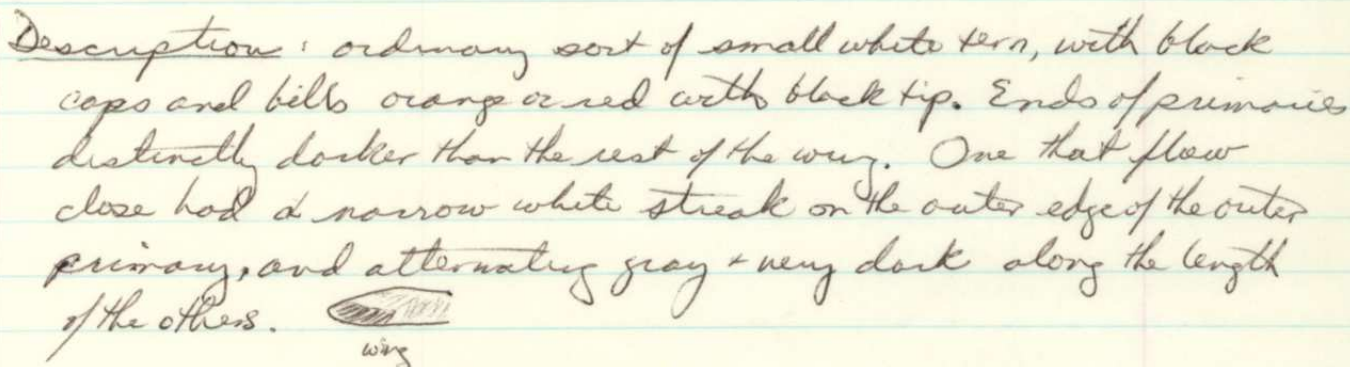 Description: ordinary sort of small white tern, with black
caps and bills orange or red with black tip. Ends of primaries
distinctly darker than the rest of the wing. One that flew
close had a narrow white streak on the outer edge of the outer
primary, and alternating gray + very dark along the length
of the others.
wing